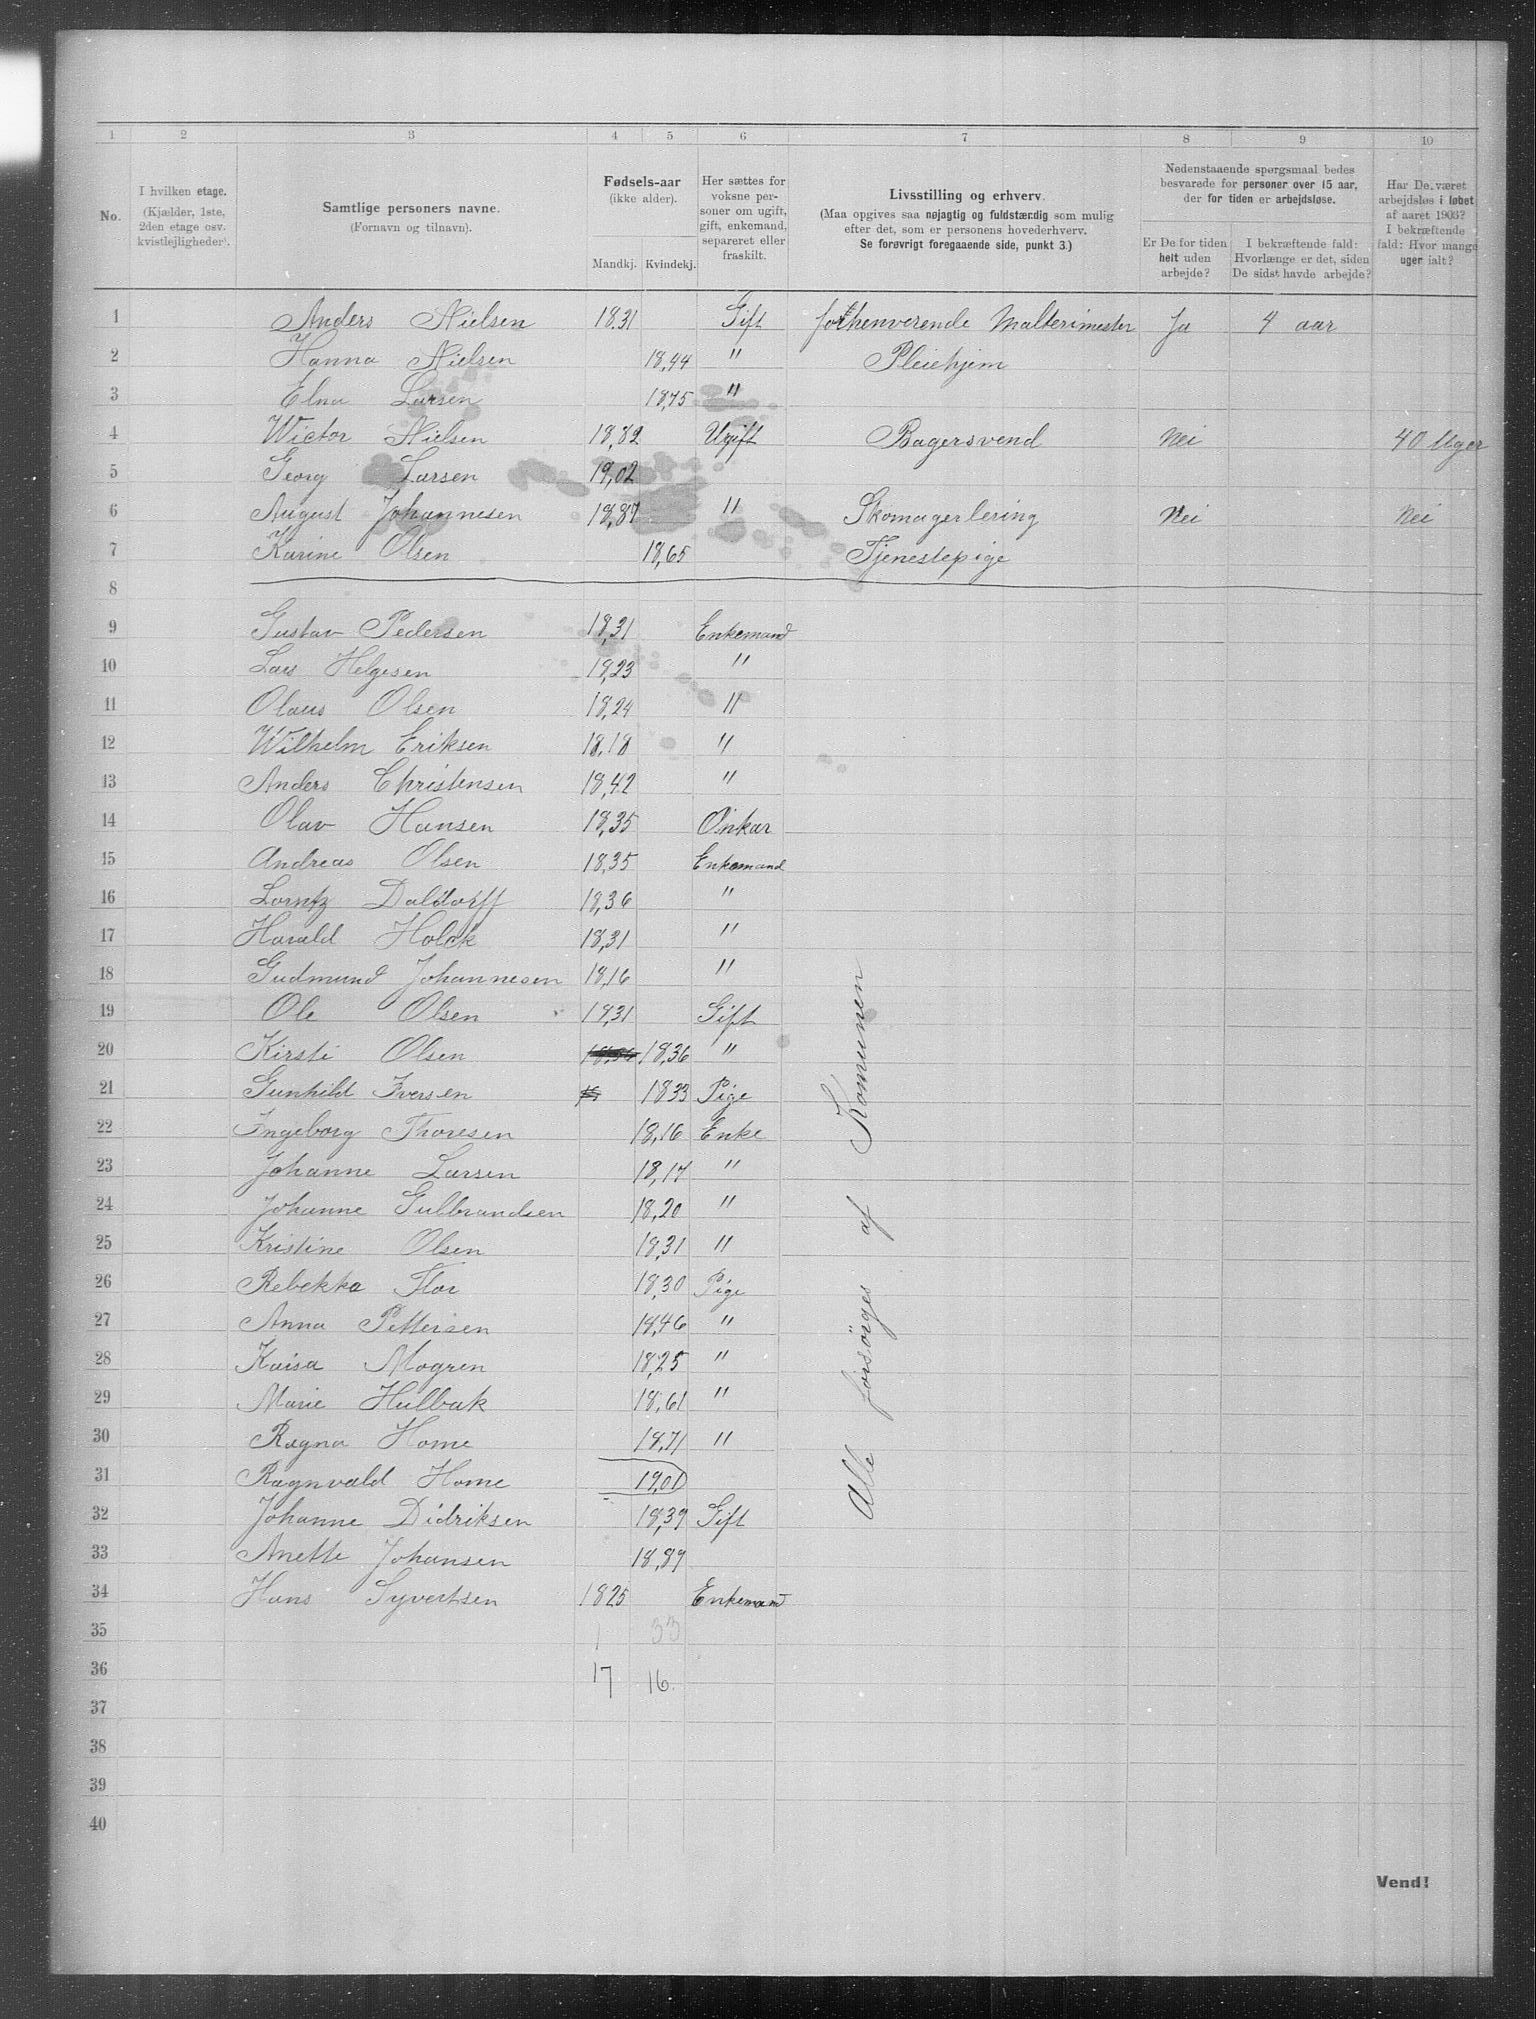 1 2 3 4 5 6 7 8 9 10
No.
I hvilken etage.
(Kjælder, 1ste,
2den etage osv.
kvistlejligheder).
Samtlige personers navne.
(Fornavn og tilnavn).
Fødsels-aar
(ikke alder).
Mandkj. Kvindekj.
Her sættes for
voksne per-
soner om ugift,
gift, enkemand,
separeret eller
fraskilt.
Livsstilling og erhverv.
(Maa opgives saa nøjagtig og fuldstændig som mulig
efter det, som er personens hovederhverv.
Se forøvrigt foregaaende side, punkt 3.)
Nedenstaaende spørgsmaal bedes
besvarede for personer over 15 aar,
der for tiden er arbejdsløse.
Er De for tiden
helt uden
arbejde?
I bekræftende fald:
Hvorlænge er det, siden
De sidst havde arbejde?
Har De været
arbejdsløs i løbet
af aaret 1903?
I bekræftende
fald: Hvor mange
uger ialt?
1 Anders Nielsen 18,31 Gift forhenverende Malterimester Ja 4 aar
2 Hanna Nielsen 18,44 " Pleiehjem
3 Elna Larsen 18,75 "
4 Wictor Nielsen 18,82 Ugift Bagersvend Nei 40 Uger
5 Georg Larsen 19,02
6 August Johannesen 18,87 " Skomagerlering Nei Nei
7 Karine Olsen 18,65 Tjenestepige
8
9 Gustav Pedersen 18,31 Enkemand
10 Lars Helgesen 18,23 "
11 Olaus Olsen 18,24 "
12 Wilhelm Eriksen 18,18 "
13 Anders Christensen 18,42 "
14 Olav Hansen 18,35 Onkar
15 Andreas Olsen 18,35 Enkemand
16 Lorntz Daldorff 18,36 "
17 Harald Holck 18,31 "
18 Gudmund Johannesen 18,16 "
19 Ole Olsen 18,31 Gift
20 Kirsti Olsen 18,36 "
21 Gunhild Iversen 1833 Pige
22 Ingeborg Thoresen 18,16 Enke
23 Johanne Larsen 18,17 "
24 Johanne Gulbrandsen 18,20 "
25 Kristine Olsen 18,31 "
26 Rebekka Flor 18,30 Pige
27 Anna Pettersen 18,46 "
28 Kaisa Mogren 18,25 "
29 Marie Hulbak 18,61 "
30 Ragna Home 18,71 "
31 Ragnvald Home 19,01
32 Johanne Didriksen 18,39 Gift
33 Anette Johansen 18,89
34 Hans Syvertsen 1825 Enkemand
Alle forsörges af Komunen
35 1 33
36 17 16.
37
38
39
40
Vend!